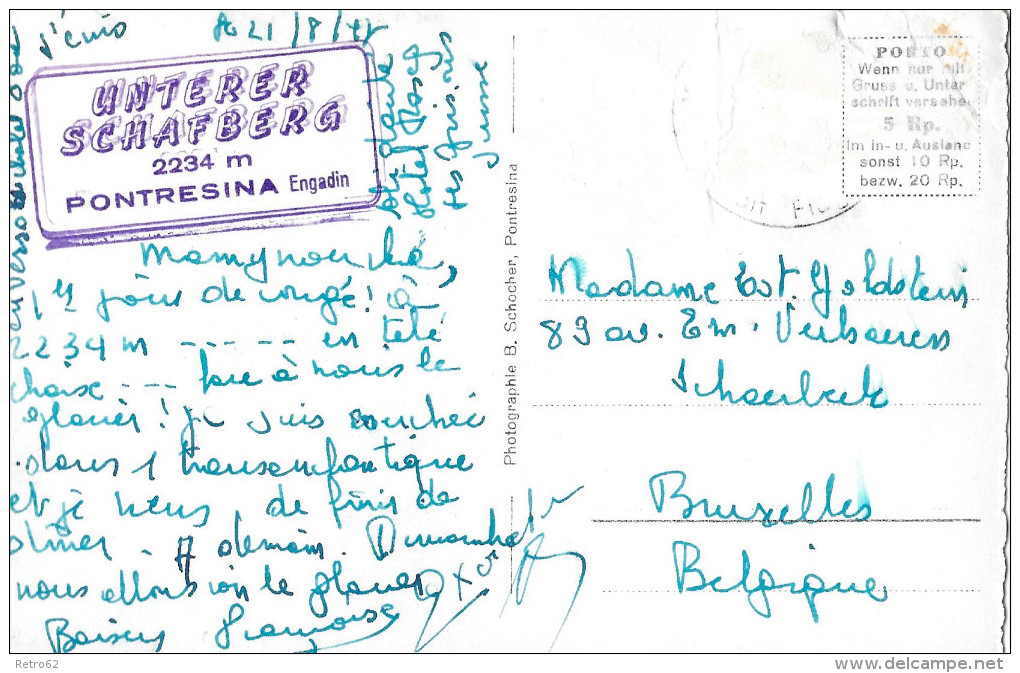 21/8/
UNTERER
SCHAFBERG
2234 m
PONTRESINA Engadin
Hôtel Roseg
Suisse
Mamynouchka,
1er jour de congé! à
2234 m ----- en tete
chaise --- face à nous le
glacier! Je suis couchée
dans 1
et je viens de finir de
diner. A demain. Dimanche
nous allons voir le glacier
Baisers Françoise
Photographie B. Schocher, Pontresina
PORTO
Wenn nur mit
Gruss u. Unter
schrift versehe
5 Rp.
Im in- u. Ausland
sonst 10 Rp.
bezw. 20 Rp.
Madame Est. Goldstein
89 av. Em. Verhaeren
Schaerbeek
Bruxelles
Belgique
Retro62
delcampe.net